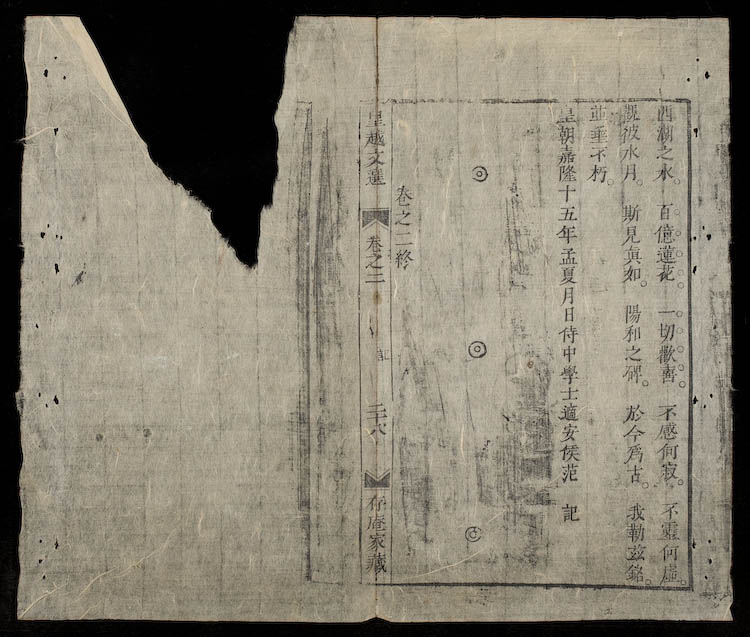 西湖之水。百億蓮花。一切歡喜。不感何寂。不靈何虛。
彼水月。斯見真如。陽和之碑。於今爲古。我勒茲銘。
並垂不朽。
皇朝嘉隆十五年孟夏月日侍中學士適安侯范 記
卷之二終
皇越文選 卷之二 記 存庵家藏